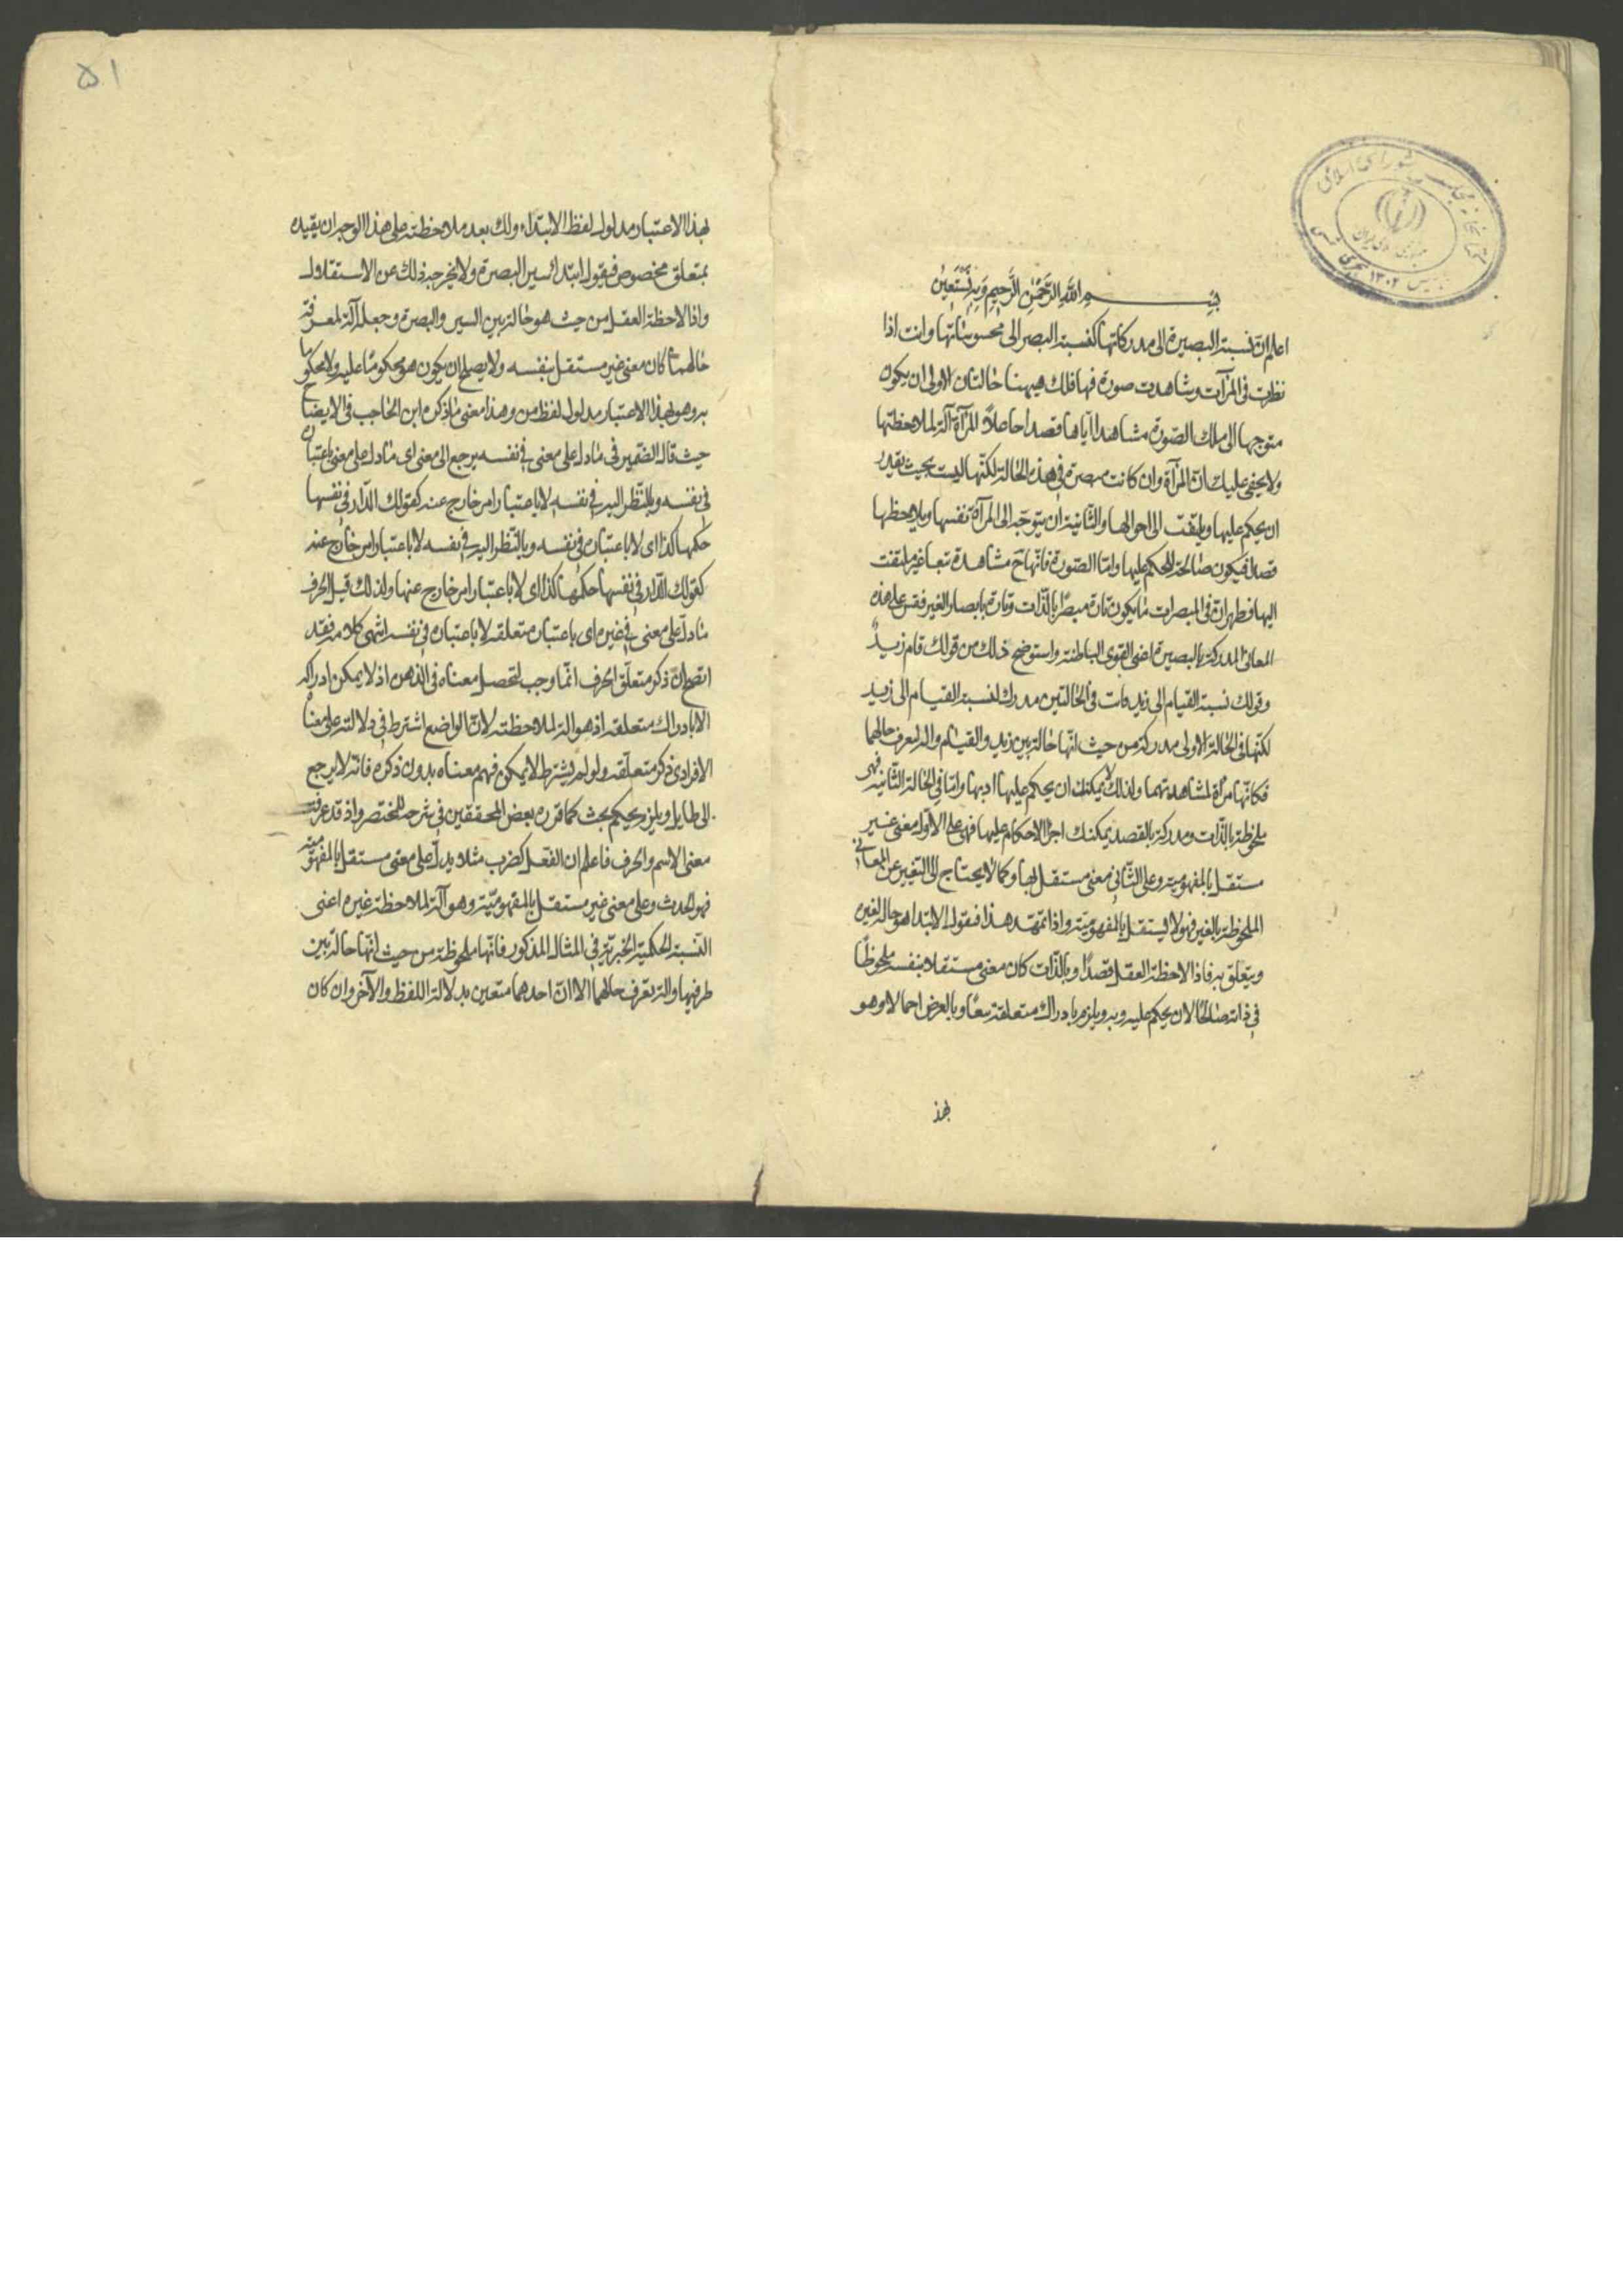 بسم الله الرحمن الرحيم وبه نستعين
اعلم ان نسبة البصيرة الى مدركاتها كنسبة البصر الى محسوساتها وانت اذا
نظرت فى المرآت وشاهدت صورة فيها فلك هيهنا حالتان الاولى ان يكون
متوجها الى تلك الصورة مشاهدا اياها قصدا جاعلاً المرآة آلة لملاحظتها
ولا يخفى عليك ان المرآة وان كانت مبصرة فى هذه الحالة لكنها ليست بحيث يقدر
ان يحكم عليها ويلتفت الى احوالها والثانية ان يتوجه الى المرآة نفسها ويلاحظها
قصدا فيكون صالحة للحكم عليها واما الصورة فانها ح مشاهدة تبعا غير ملتفت
اليها فظهر ان فى المبصرات ما يكون تارة مبصرًا بالذات وتارة بابصار الغير فقس على هذه
المعانى المدركة بالبصيرة اعنى القوى الباطنة واستوضح ذلك من قولك قام زيدٌ
وقولك نسبة القيام الى زيد فانت فى الحالتين مدرك لنسبة القيام الى زيد
لكنها فى الحالة الاولى مدركة من حيث انها حالة بين زيد والقيام وآلة لتعرف حالهما
فكانها مرآة لمشاهدتهما ولذلك لا يمكنك ان يحكم عليها او بها واما فى الحالة الثانية فهى
ملحوظة بالذات ومدركة بالقصد يمكنك اجرا الاحكام عليها فهى على الاول معنى غير
مستقل بالمفهومية وعلى الثانى معنى مستقل بها وكما لا يحتاج الى التغيير عن المعانى
الملحوظة بالغير فهو لا يستقل بالمفهومية واذا تمهد هذا فنقول الابتدا هو حالة لغيره
ويتعلق به فاذا لاحظه العقل قصدًا وبالذات كان معنى مستقلا بنفسه ملحوظًا
فى ذاته صالحًا لان يحكم عليه وبه ويلزمه ادراك متعلقه تبعًا وبالعرض اجمالا وهو
بهذ
۵۱
بهذا الاعتبار مدلول لفظ الابتداء ولك بعد ملاحظته على هذا الوجه ان يقيده
بمتعلق مخصوص فيقول ابتدا سير البصرة ولا يخرجه ذلك عن الاستقلال
واذا لاحظه العقل من حيث هو حالة بين السير والبصرة وجعله آلة لمعرفة
حالهما كان معنى غير مستقل بنفسه ولا يصلح ان يكون هو محكومًا عليه ولا محكوما
به وهو بهذا الاعتبار مدلول لفظ من وهذا معنى ما ذكره ابن الحاجب فى الايضاح
حيث قال الضمير فى ما دل على معنى فى نفسه يرجع الى معنى اى ما دل على معنى باعتباره
فى نفسه وبالنظر اليه فى نفسه لا باعتبار امر خارج عنه كقولك الدار فى نفسها
حكمها كذا اى لا باعتباره فى نفسه وبالنظر اليه فى نفسه لا باعتبار امر خارج عنه
كقولك الدار فى نفسها حكمها كذا اى لا باعتبار امر خارج عنها ولذلك قيل الحرف
ما دلّ على معنى فى غيره اى باعتبار متعلقه لا باعتباره فى نفسه انتهى كلامه فقد
اتضح ان ذكر متعلق الحرف انما وجب لتحصل معناه فى الذهن اذ لا يمكن ادراكه
الا بادراك متعلقه اذ هو آلة لملاحظته لا ان الواضع اشترط فى دلالته على معناه
الافرادى ذكر متعلقه ولو لم يشترط لا يمكن فهم معناه بدون ذكره فانه لا يرجع
الى طايل ويلزم تحكم بحت كما قرره بعض المحققين فى شرحه للمختصر واذ قد عرفت
معنى الاسم والحرف فاعلم ان الفعل كضرب مثلا يدلّ على معنى مستقل بالمفهومية
فهو الحدث وعلى معنى غير مستقل بالمفهوميّة وهو آلة لملاحظة غيره اعنى
النسبة الحكمية الخبرية فى المثال المذكور فانها ملحوظة من حيث انها حالة بين
طرفيها وآلة يتعرف حالهما الا ان احدهما متعين بدلالة اللفظ والآخر وان كان